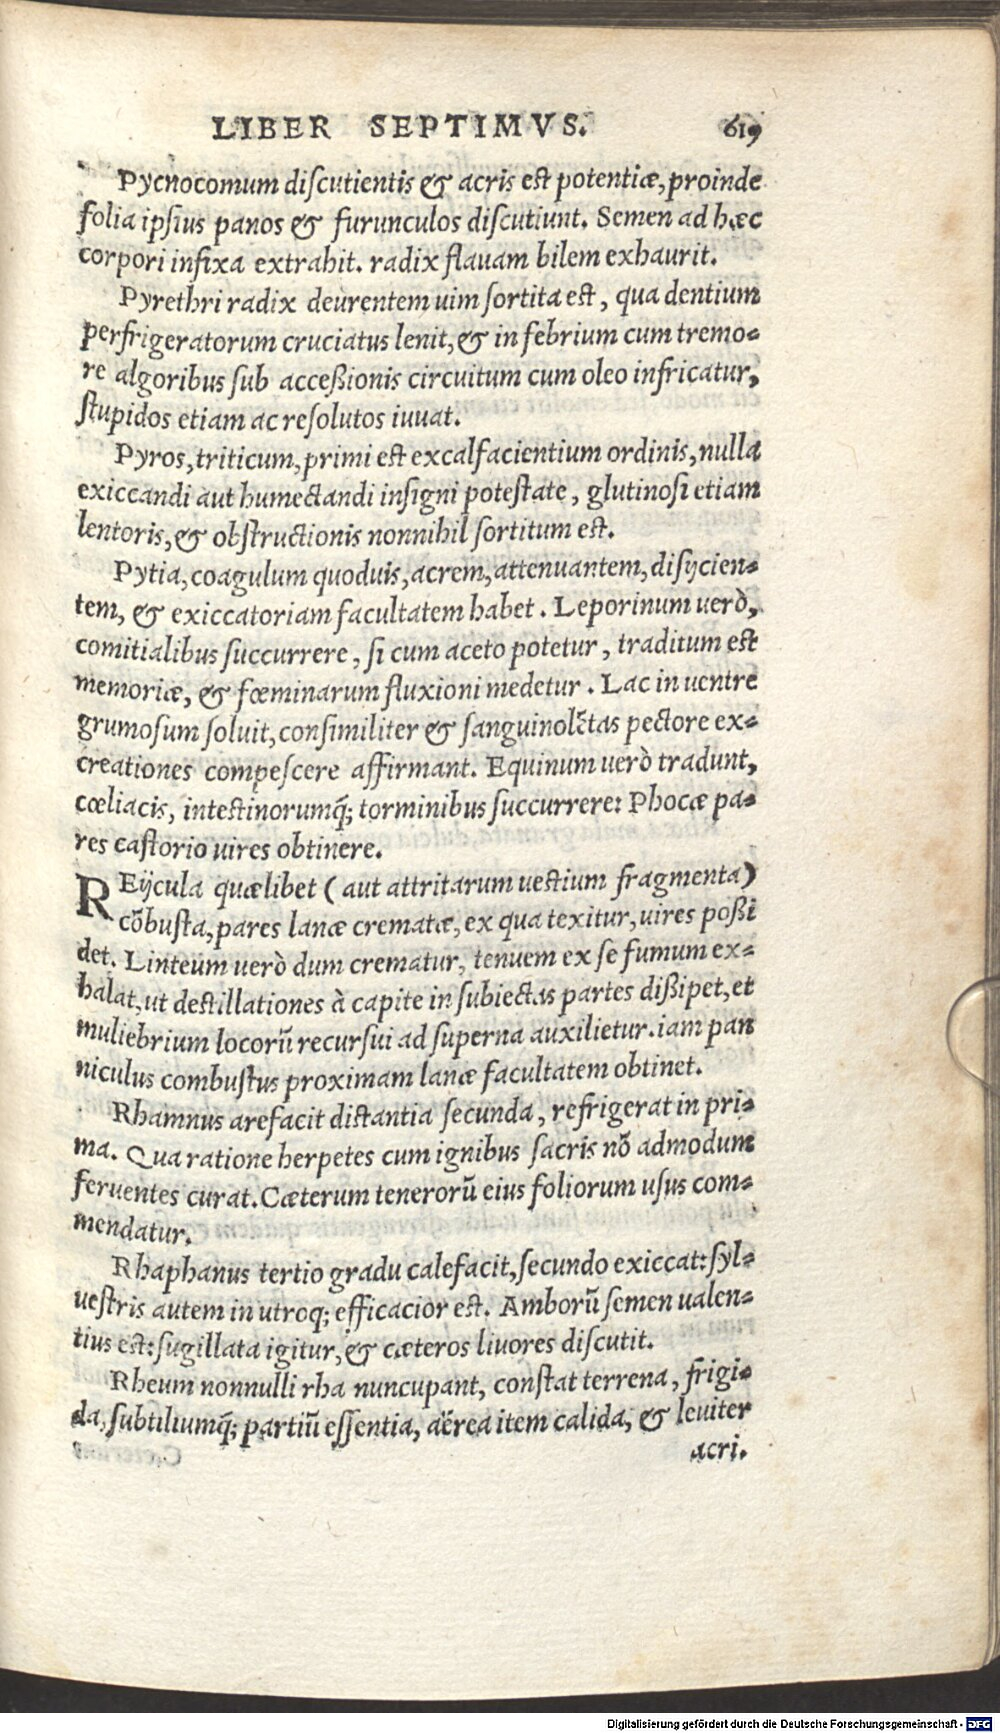 LIBER SEPTIMVS. 619
Pycnocomum discutientis & acris est potentiæ, proinde
folia ipsius panos & furunculos discutiunt. Semen ad hæc
corpori infixa extrahit. radix flauam bilem exhaurit.
Pyrethri radix deurentem uim sortita est, qua dentium
perfrigeratorum cruciatus lenit, & in febrium cum tremo=
re algoribus sub acceßionis circuitum cum oleo infricatur,
stupidos etiam ac resolutos iuuat.
Pyros, triticum, primi est excalfacientium ordinis, nulla
exiccandi aut humectandi insigni potestate, glutinosi etiam
lentoris, & obstructionis nonnihil sortitum est.
Pytia, coagulum quoduis, acrem, attenuantem, disijcien=
tem, & exiccatoriam facultatem habet. Leporinum uerò,
comitialibus succurrere, si cum aceto potetur, traditum est
memoriæ, & fœminarum fluxioni medetur. Lac in uentre
grumosum soluit, consimiliter & sanguinolētas pectore ex=
creationes compescere affirmant. Equinum uerò tradunt,
cœliacis, intestinorumq́; torminibus succurrere: Phocæ pa=
res castorio uires obtinere.
REijcula quælibet (aut attritarum uestium fragmenta)
cōbusta, pares lanæ crematæ, ex qua texitur, uires poßi
det. Linteum uerò dum crematur, tenuem ex se fumum ex=
halat, ut destillationes à capite in subiectas partes dißipet, et
muliebrium locorū recursui ad superna auxilietur. iam pan
niculus combustus proximam lanæ facultatem obtinet.
Rhamnus arefacit distantia secunda, refrigerat in pri=
ma. Qua ratione herpetes cum ignibus sacris nō admodum
feruentes curat. Cæterum tenerorū eius foliorum usus com=
mendatur.
Rhaphanus tertio gradu calefacit, secundo exiccat: syl=
uestris autem in utroq; efficacior est. Amborū semen ualen=
tius est: sugillata igitur, & cæteros liuores discutit.
Rheum nonnulli rha nuncupant, constat terrena, frigi=
da, subtiliumq́; partiū essentia, aërea item calida, & leuiter
acri.
Digitalisierung gefördert durch die Deutsche Forschungsgemeinschaft - DFG